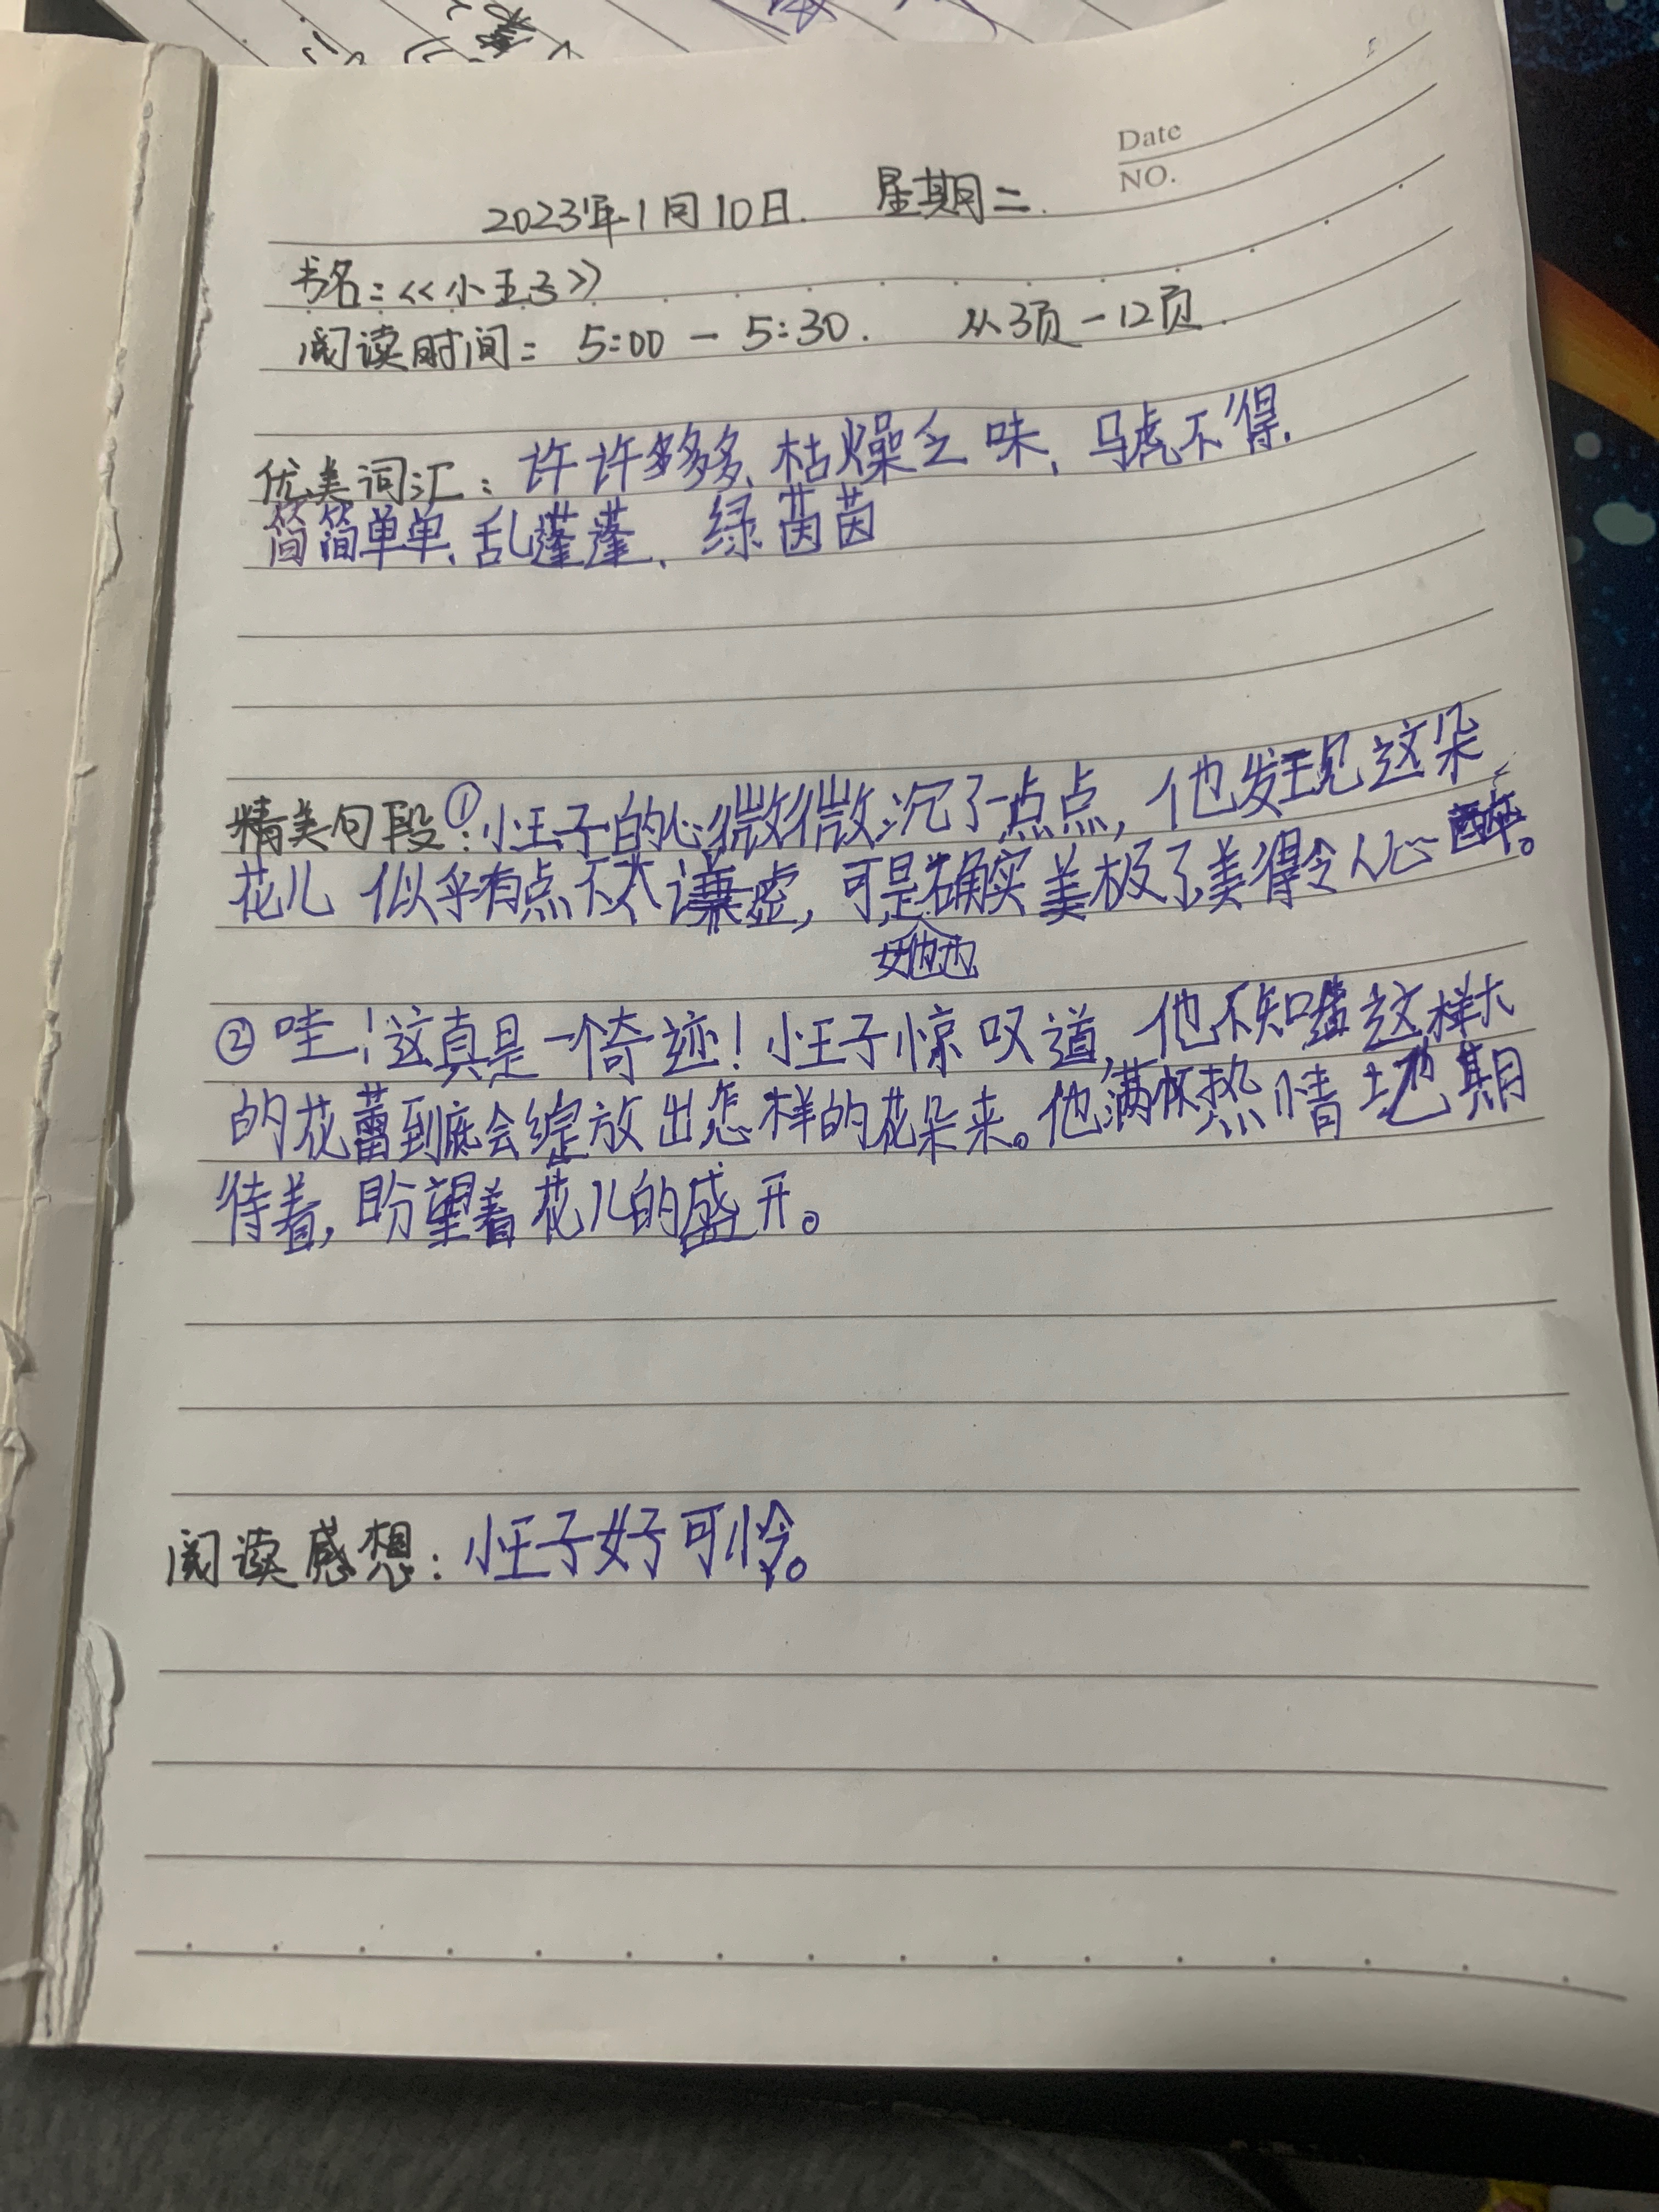 Date
NO.
2023年1月10日. 星期二.
书名:《小王子》
阅读时间: 5:00 - 5:30. 从3页-12页.
优美词汇: 许许多多、枯燥乏味、马虎不得、
简简单单、乱蓬蓬、绿茵茵
精美句段:①小王子的心微微沉了一点点,他发现这朵
花儿似乎有点不太谦虚,可是确实美极了美得令人心醉。
她也
②哇!这真是一个奇迹!小王子惊叹道,他不知道这样大
的花蕾到底会绽放出怎样的花朵来。他满怀热情地期
待着,盼望着花儿的盛开。
阅读感想:小王子好可怜。